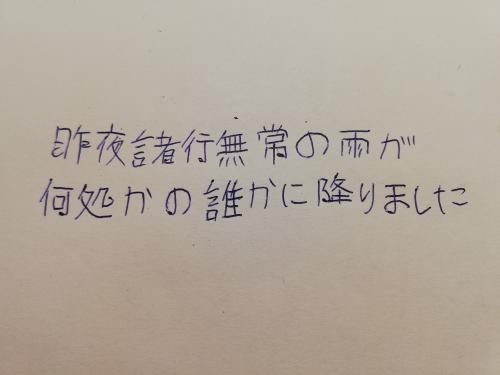 昨夜諸行無常の雨が
何処かの誰かに降りました